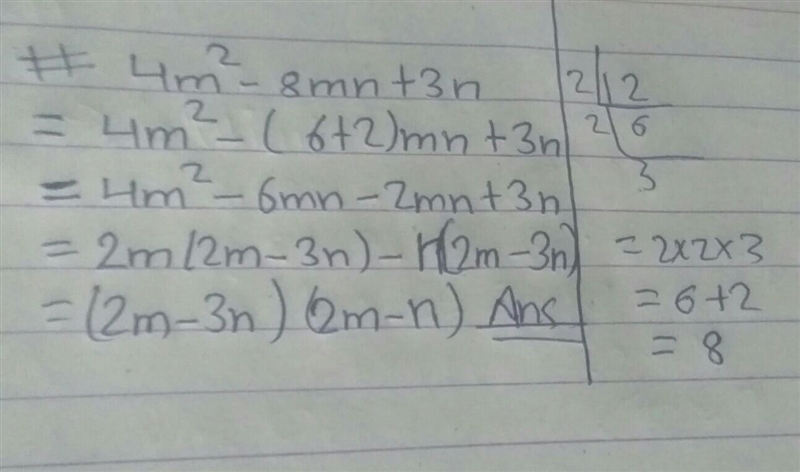 # 4m² - 8mn + 3n
= 4m² - (6+2)mn + 3n
= 4m² - 6mn - 2mn + 3n
= 2m(2m - 3n) - n(2m - 3n)
= (2m - 3n) (2m - n) Ans
2 | 12
2 | 6
3
= 2×2×3
= 6+2
= 8